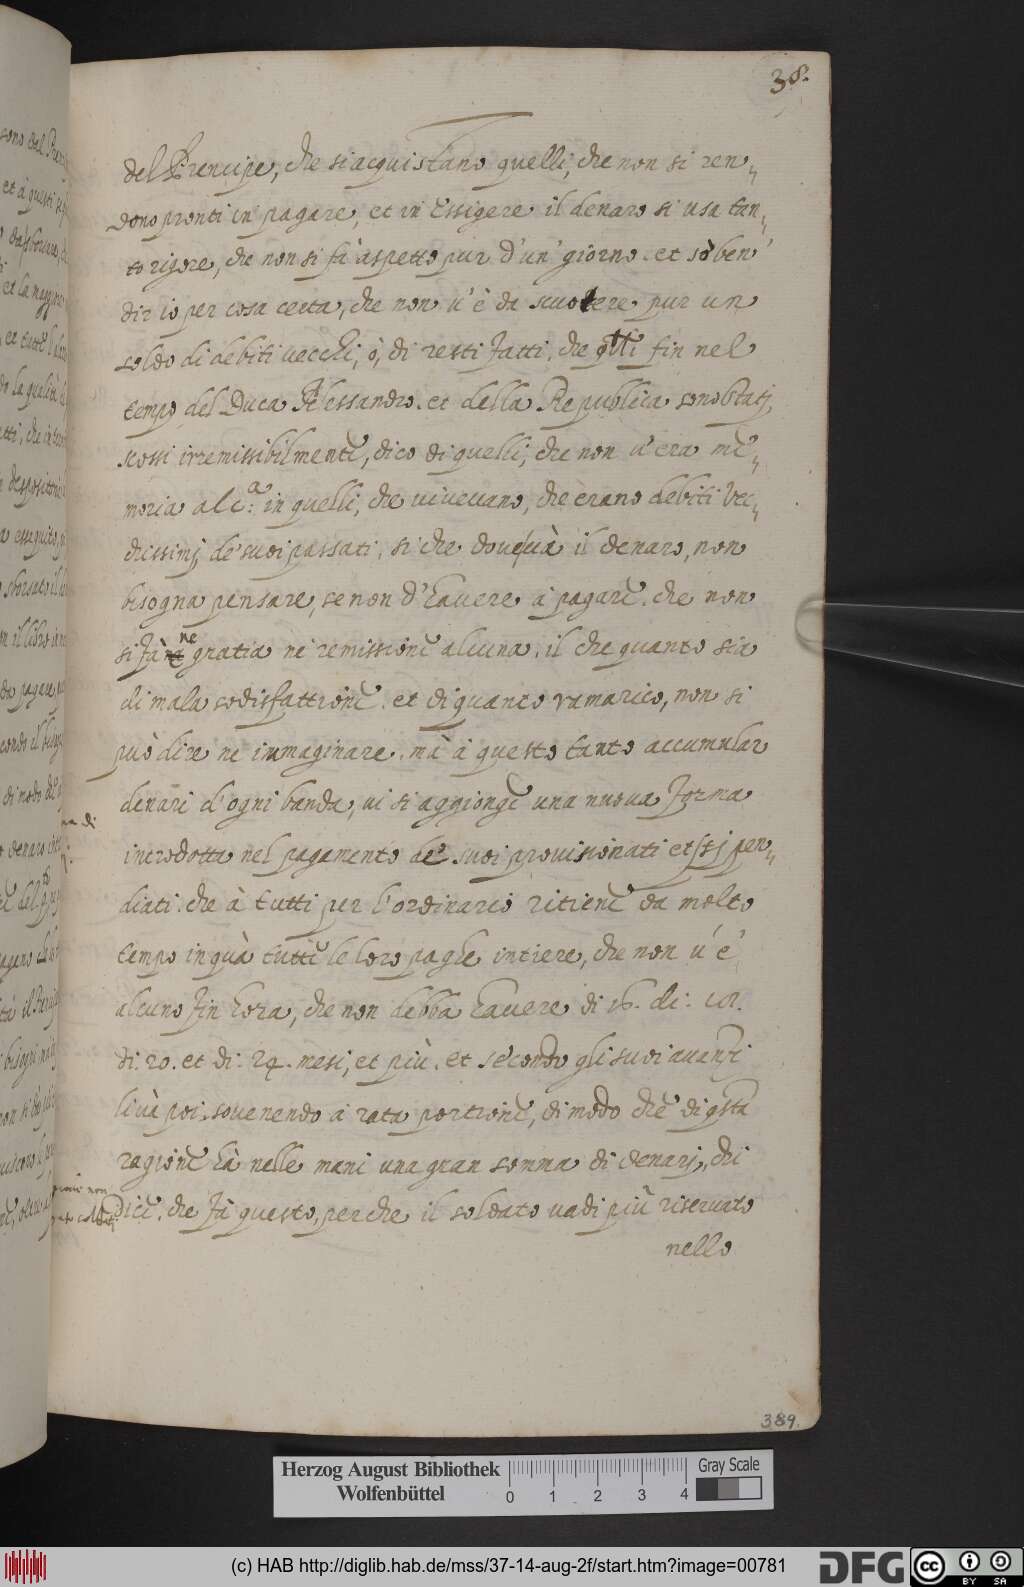 38.
del Prencipe, che si acquistano quelli, che non si ren„
dono pronti in pagare, et in essigere il denaro si usa tan„
to rigore, che non si fà aspetto pur d'un' giorno. et sò ben'
dir io per cosa certa, che non u'è da scuotere pur un
soldo di debiti uecchi, ò, di resti fatti, che fin nel
tempo del Duca Alessandro. et della Republica sono statj
scossi irremissibilmente, dico di quelli, che non u'era me„
moria alc:a in quelli, che uiueuano, che erano debiti vec„
chissimj de' suoi passati, si che doue uà il denaro, non
bisogna pensare, se non d'hauere à pagare. che non
si fà ne gratia ne remissione alcuna. il che quanto sia
di mala sodisfattione. et di quanto ramarico, non si
può dire ne immaginare. mà à questo tanto accumular
denari d'ogni banda, ui si aggionge una nuoua forma
introdotta nel pagamento de' suoi prouisionati et stipen„
diati. che à tutti per l'ordinario ritiene da molto
tempo in quà tutte le loro paghe intiere, che non u'è
alcuno fin hora, che non debba hauere di 16. di: 18.
di: 20. et di: 24. mesi, et più. et secondo gli suoi auanzi
li uà poi souenendo à rata portione, di modo che di qsta
ragione hà nelle mani una gran somma di denarj, chi
dice. che fà questo, perche il soldato uadi più riseruato
nello
389.
Herzog August Bibliothek
Wolfenbüttel
0 1 2 3 4
Gray Scale
(c) HAB http://diglib.hab.de/mss/37-14-aug-2f/start.htm?image=00781
DFG
cc BY SA